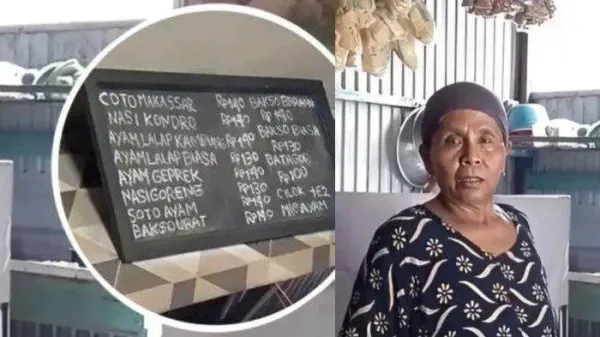 COTO MAKASSAR Rp140 BAKSO
NASI KONDRO Rp140
AYAM LALAP BAKSO BIASA
AYAM LALAP BIASA Rp130 Rp130
AYAM GEPREK Rp140 BATAGOR Rp100
NASI GORENG Rp130 CILOK
SOTO AYAM Rp140 MIE AYAM
BAKSO URAT Rp140